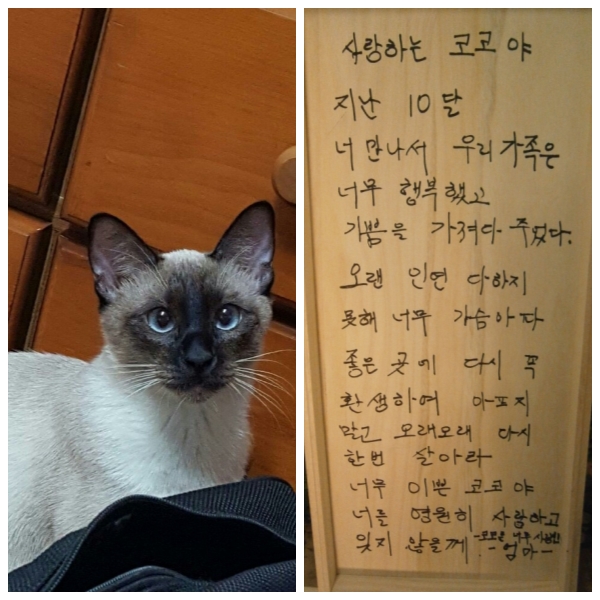 사랑하는 코코야
지난 10달
너 만나서 우리가족은
너무 행복했고
기쁨을 가져다 주었다.
오랜 인연 다하지
못해 너무 가슴아파
좋은 곳에 다시 꼭
환생하여 아프지
말고 오래오래 다시
한번 살아라
너무 이쁜 코코야
너를 영원히 사랑하고
잊지 않을께
-엄마-